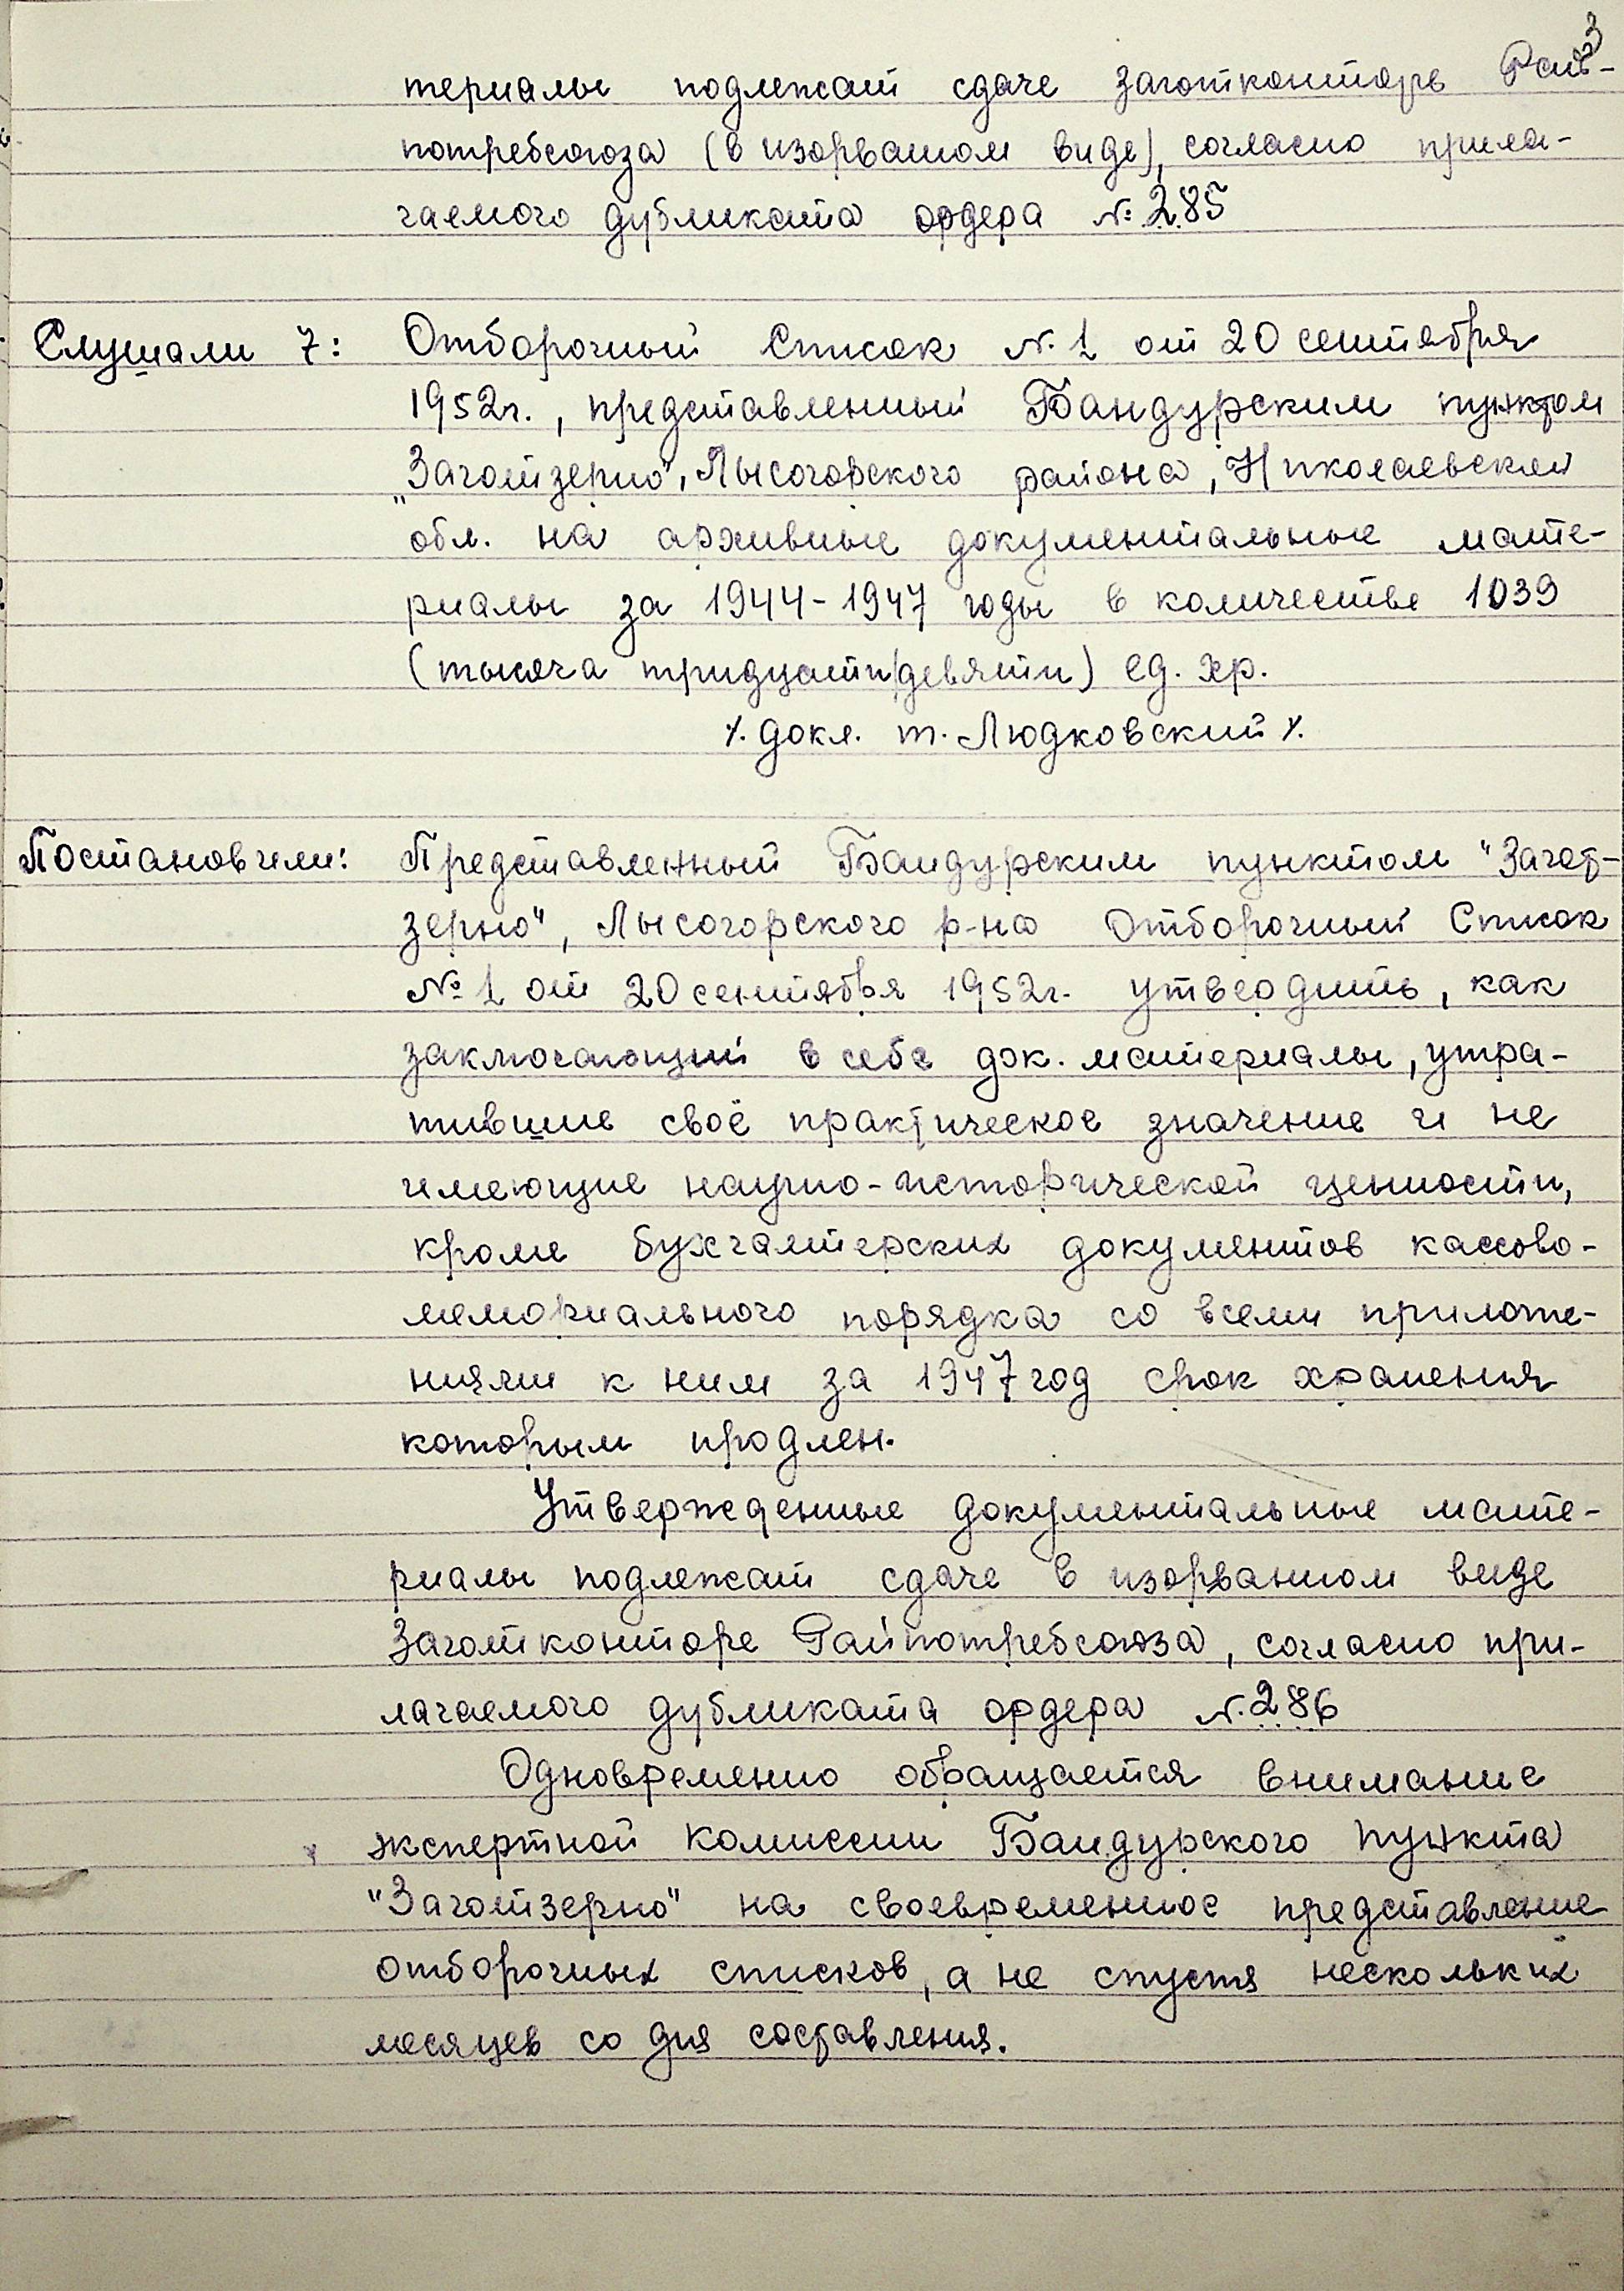 3
териалы подлежат сдаче заготконторе Рай-
потребсоюза (в изорваном виде), согласно прила-
гаемого дубликата ордера №285
Слушали 7: Отборочный Список №1 от 20 сентября
1952г., представленный Бандурским пунктом
„Заготзерно", Лысогорского района, Николаевской
обл. на архивные документальные мате-
риалы за 1944-1947 годы в количестве 1039
(тысяча тридцати/девяти) ед. хр.
⁒ докл. т. Людковский ⁒
Постановили: Представленный Бандурским пунктом "Загот-
зерно", Лысогорского р-на Отборочный Список
№1 от 20 сентября 1952г. утвердить, как
заключающий в себе док. материалы, утра-
тившие своё практическое значение и не
имеющие научно-исторической ценности,
кроме бухгалтерских документов кассово-
мемориального порядка со всеми приложе-
ниями к ним за 1947 год срок хранения
которым продлен.
Утвержденные документальные мате-
риалы подлежат сдаче в изорванном виде
Заготконторе Райпотребсоюза, согласно при-
лагаемого дубликата ордера №286
Одновременно обращается внимание
экспертной комиссии Бандурского пункта
"Заготзерно" на своевременное представление
отборочных списков, а не спустя нескольких
месяцев со дня составления.